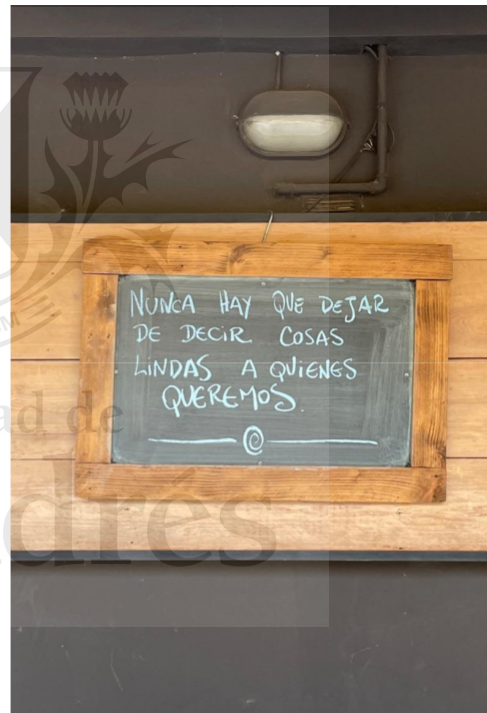 NUNCA HAY QUE DEJAR
DE DECIR COSAS
LINDAS A QUIENES
QUEREMOS.
ad de
drés